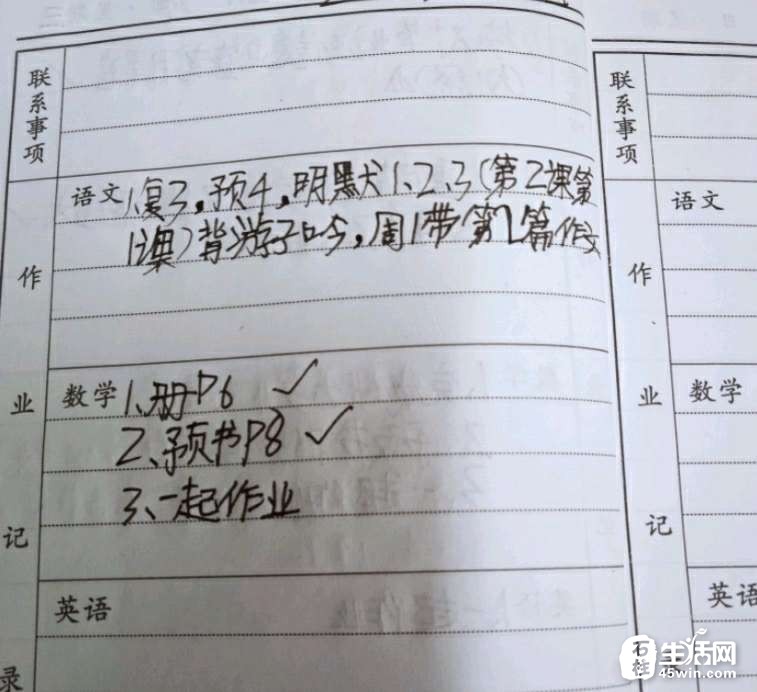 联系事项
联系事项
语文 1.复3，预4，明默1、2、3（第2课第
1课）背游子吟，周1带第1篇作文
语文
作业记录
作业记
数学 1、册P6 ✓
2、预书P8 ✓
3、一起作业
数学
英语
英语
石柱生活网
45win.com